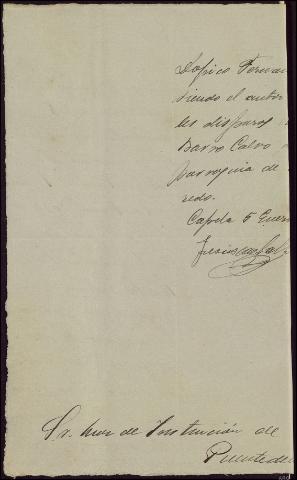 Lopico Fernan
siendo el autor
los disparos
Barro Calvo
parroquia de
redo.
Capela 5 Enero
Sr. Juez de Instrucción de
Puentede